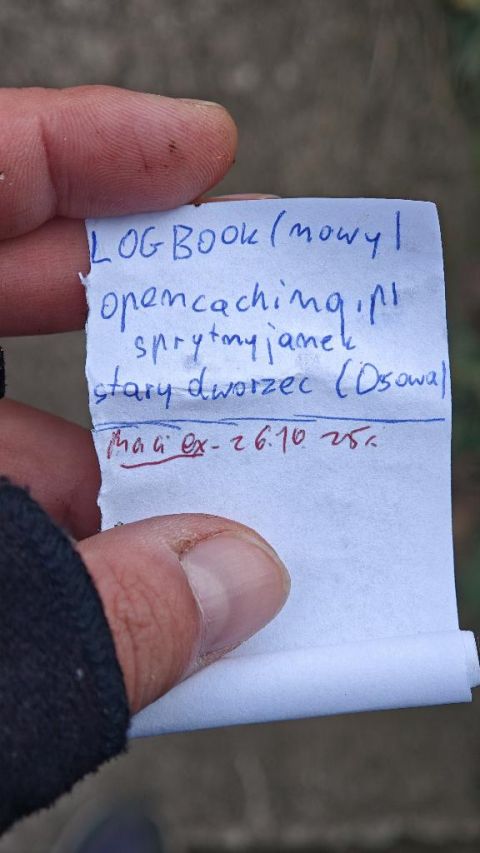 LOGBOOK (nowy)
opencaching.pl
sprytnyjanek
stary dworzec (Osowa)
Maciex - 26.10 25r.